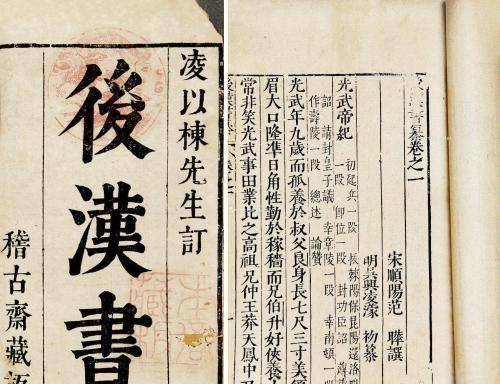 凌以棟先生訂
後漢書
稽古齋藏
書纂卷之一
宋順陽范曄譔
明吳興凌濛初纂
光武帝紀
初起兵一段
一段 卽位一段 封功臣詔 薄葬
詔 請封皇子議 幸章陵一段 幸南頓一段
作壽陵一段 總述 論贊
光武年九歲而孤養於叔父良身長七尺三寸美
眉大口隆準日角性勤於稼穡而兄伯升好俠養
常非笑光武事田業比之高祖兄仲王莽天鳳中